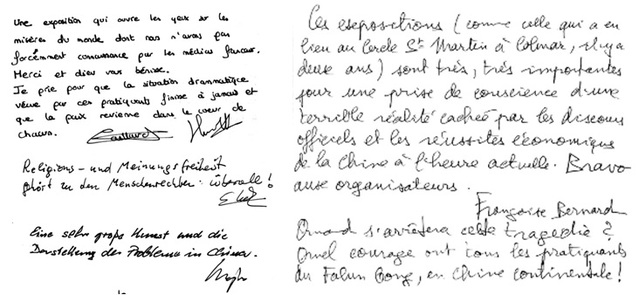 Une exposition qui ouvre les yeux sur les
misères du monde dont nous n'avons pas
forcément connaissance par les médias français.
Merci et dieu vous bénisse.
Je prie pour que la situation drammatique
vécue par ces pratiquants finisse à jamais et
que la paix revienne dans le coeur de
chacun.
Religions- und Meinungsfreiheit
gehört zu den Menschenrechten: überall!
Eine sehr große Kunst und die
Darstellung des Problems in China.
Ces expositions (comme celle qui a eu
lieu au Cercle St Martin à Colmar, il y a
deux ans) sont très, très importantes
pour une prise de conscience d'une
terrible réalité cachée par les discours
officiels et les réussites économiques
de la Chine à l'heure actuelle. Bravo
aux organisateurs.
Françoise Bernard
Quand s'arrêtera cette tragédie?
Quel courage ont tous les pratiquants
du Falun Gong, en Chine continentale!